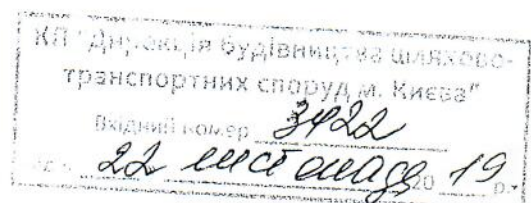 КП "Дирекція будівництва шляхово-
транспортних споруд м. Києва"
Вхідний номер 3422
22 листопада 20 19 р.